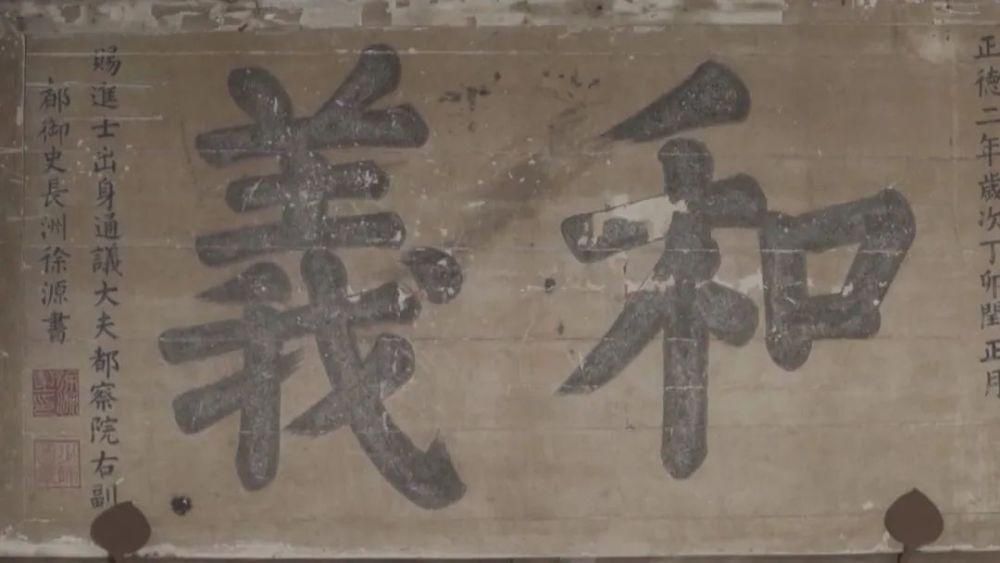 正德二年歲次丁卯閏正月
和義
賜進士出身通議大夫都察院右副
都御史長洲徐源書